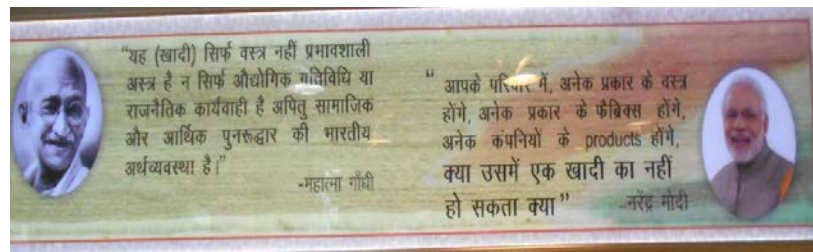 “यह (खादी) सिर्फ वस्त्र नहीं प्रभावशाली
अस्त्र है न सिर्फ औद्योगिक गतिविधि या
राजनैतिक कार्यवाही है अपितु सामाजिक
और आर्थिक पुनरूद्धार की भारतीय
अर्थव्यवस्था है।”
-महात्मा गाँधी
“ आपके परिवार में, अनेक प्रकार के वस्त्र
होंगे, अनेक प्रकार के फैब्रिक्स होंगे,
अनेक कंपनियों के products होंगे,
क्या उसमें एक खादी का नहीं
हो सकता क्या”
-नरेंद्र मोदी